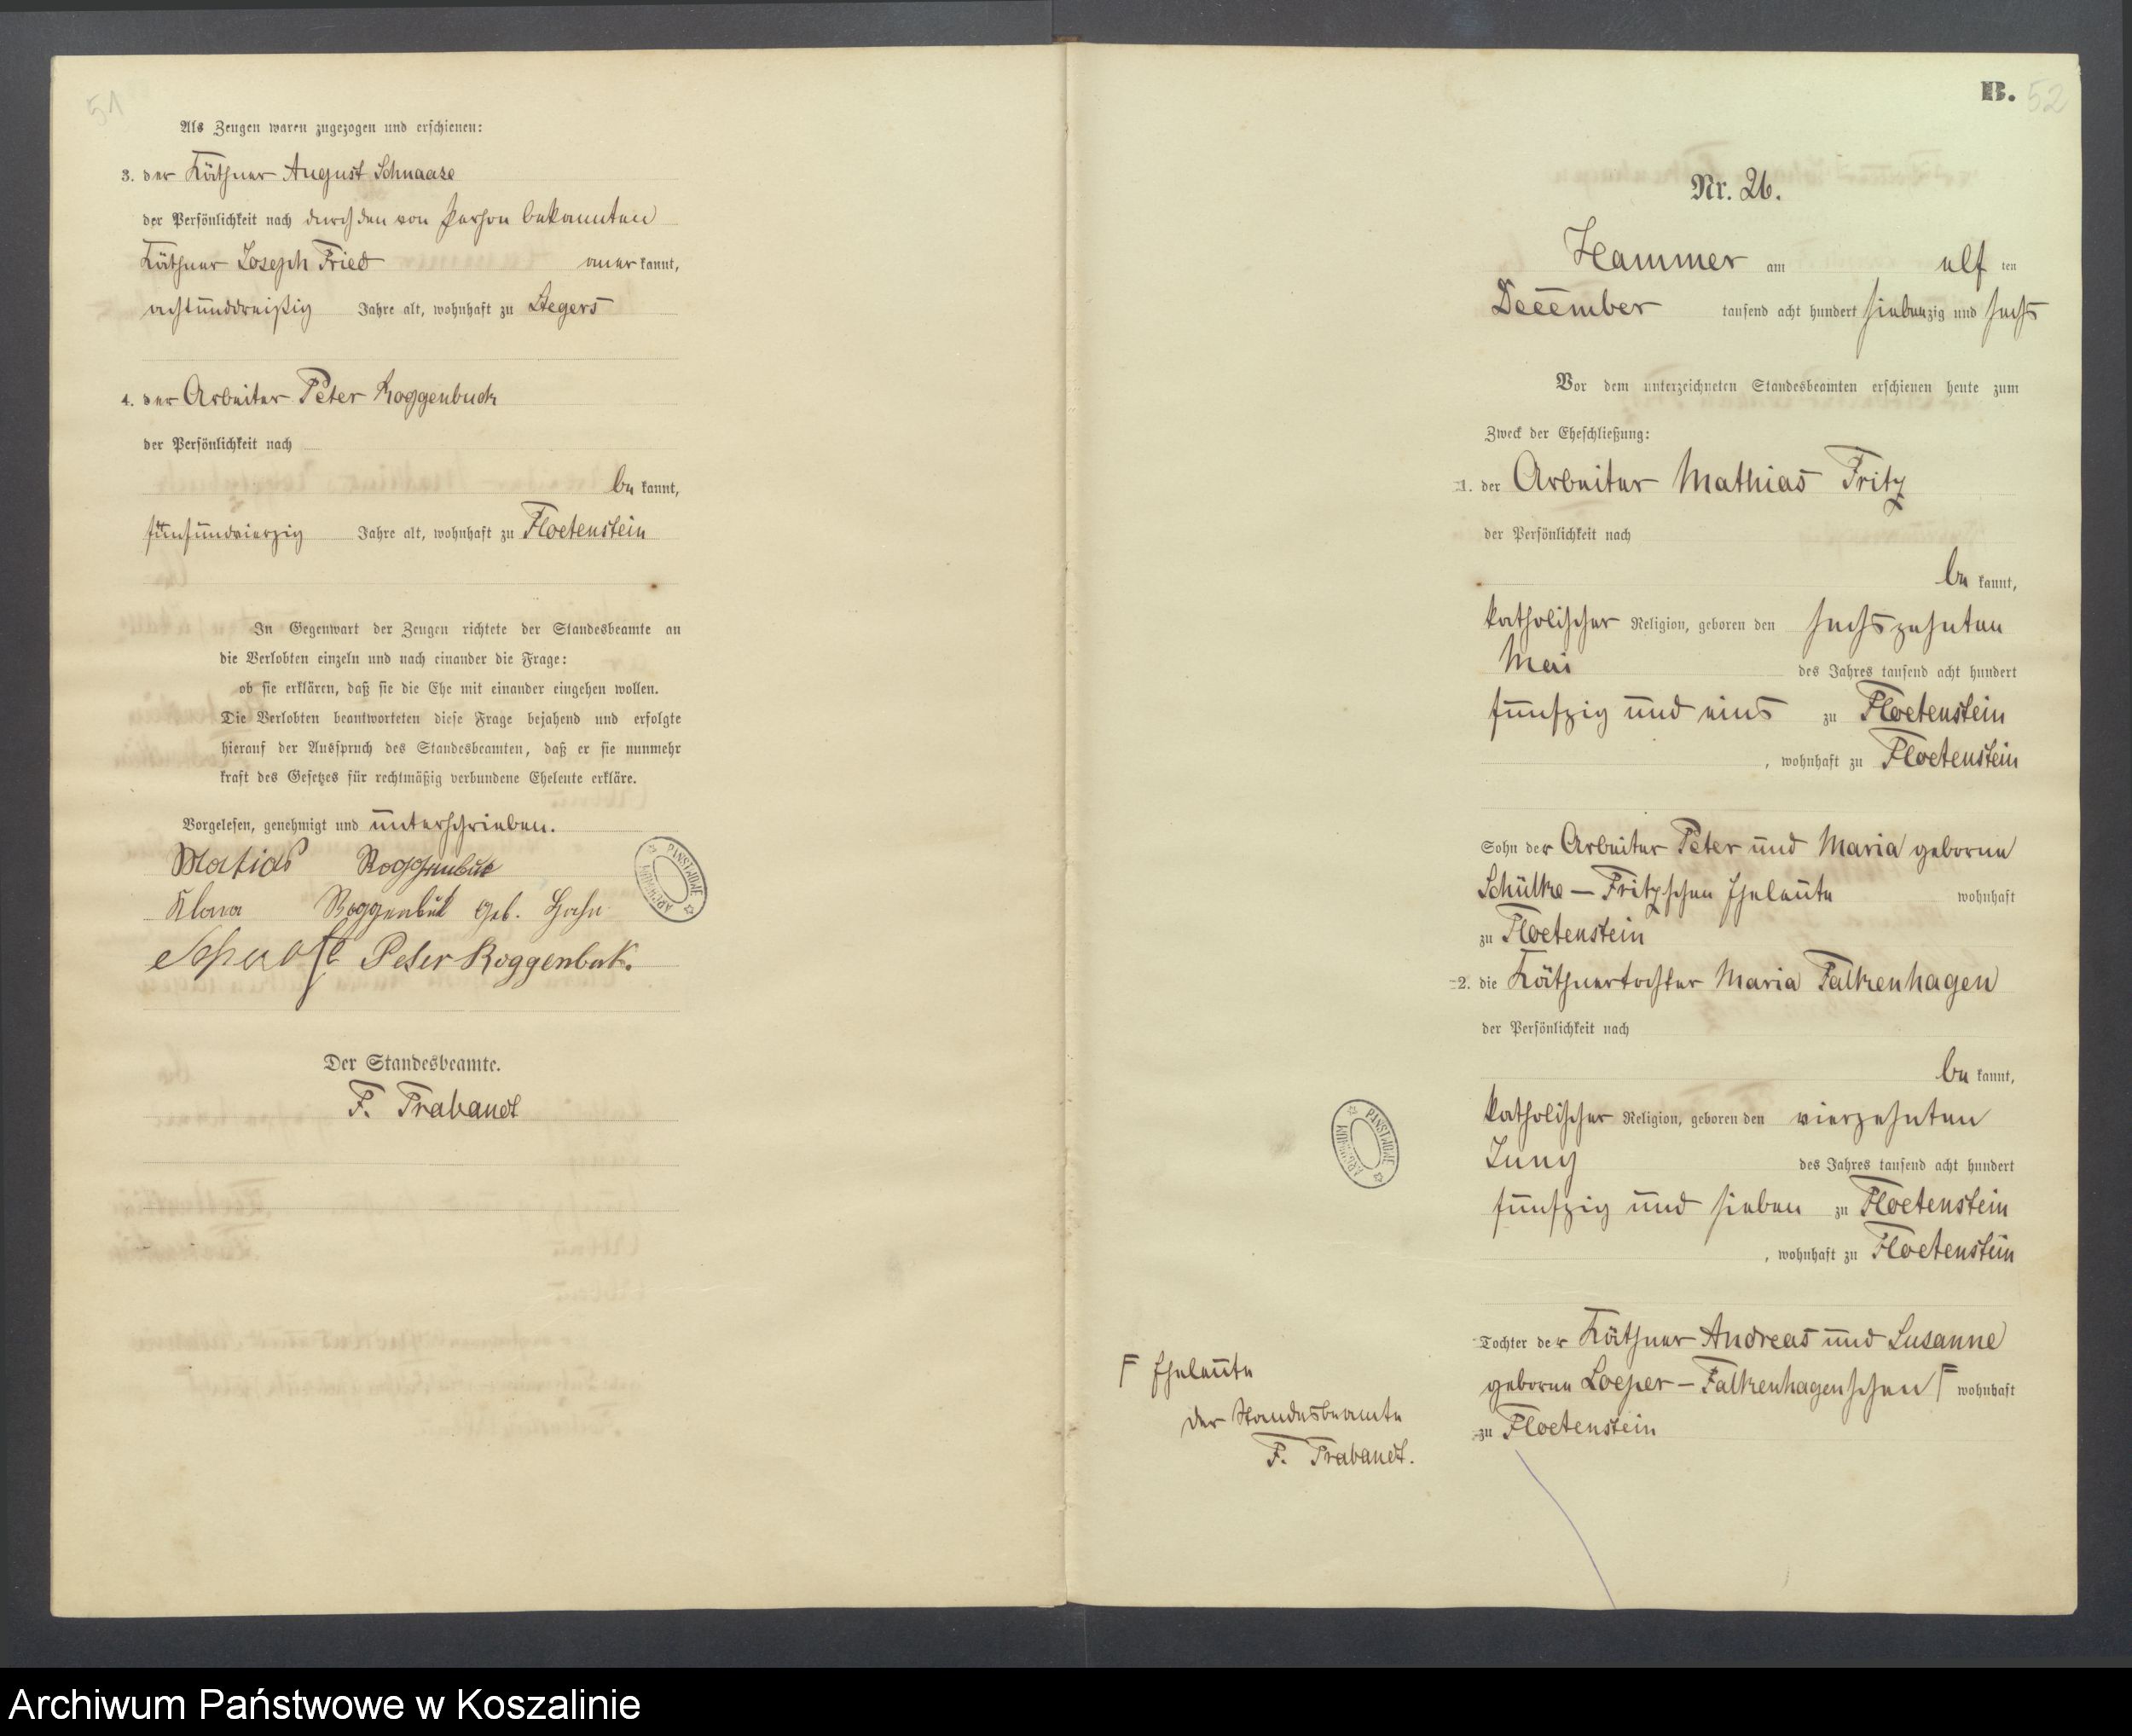 51
Als Zeugen waren zugezogen und erschienen:
3. der Käthner August Schnaase
der Persönlichkeit nach durch den von Person bekannten
Käthner Joseph Fried anerkannt,
achtunddreißig Jahre alt, wohnhaft zu Stegers
4. der Arbeiter Peter Roggenbuck
der Persönlichkeit nach
be kannt,
fünfundvierzig Jahre alt, wohnhaft zu Floetenstein
In Gegenwart der Zeugen richtete der Standesbeamte an
die Verlobten einzeln und nach einander die Frage:
ob sie erklären, daß sie die Ehe mit einander eingehen wollen.
Die Verlobten beantworteten diese Frage bejahend und erfolgte
hierauf der Ausspruch des Standesbeamten, daß er sie nunmehr
kraft des Gesetzes für rechtmäßig verbundene Eheleute erkläre.
Vorgelesen, genehmigt und unterschrieben.
Matias Roggenbuk
Klara Roggenbuk geb. Hahn
Schnase Peter Roggenbuk.
ARCHIWUM PAŃSTWOWE
Der Standesbeamte.
F. Trabandt
B. 52
Nr. 26.
Hammer am elf ten
December tausend acht hundert siebenzig und sechs
Vor dem unterzeichneten Standesbeamten erschienen heute zum
Zweck der Eheschließung:
1. der Arbeiter Mathias Fritz
der Persönlichkeit nach
be kannt,
katholischer Religion, geboren den sechszehnten
Mai des Jahres tausend acht hundert
fünfzig und eins zu Floetenstein
, wohnhaft zu Floetenstein
Sohn der Arbeiter Peter und Maria geborne
Schülke – Fritzschen Eheleute wohnhaft
zu Floetenstein
2. die Käthnertochter Maria Falkenhagen
der Persönlichkeit nach
be kannt,
katholischer Religion, geboren den vierzehnten
Juny des Jahres tausend acht hundert
fünfzig und sieben zu Floetenstein
, wohnhaft zu Floetenstein
Tochter der Käthner Andreas und Susanne
geborne Loeper – Falkenhagenschen F wohnhaft
zu Floetenstein
F Eheleute
Der Standesbeamte
F. Trabandt.
ARCHIWUM PAŃSTWOWE
Archiwum Państwowe w Koszalinie